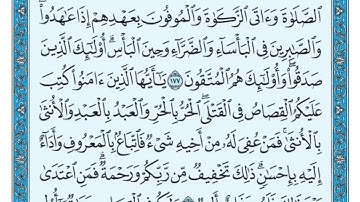 ٱلصَّلَوٰةَ وَءَاتَى ٱلزَّكَوٰةَ وَٱلْمُوفُونَ بِعَهْدِهِمْ إِذَا عَٰهَدُوا۟ۖ
وَٱلصَّٰبِرِينَ فِى ٱلْبَأْسَآءِ وَٱلضَّرَّآءِ وَحِينَ ٱلْبَأْسِۗ أُو۟لَٰٓئِكَ ٱلَّذِينَ
صَدَقُوا۟ۖ وَأُو۟لَٰٓئِكَ هُمُ ٱلْمُتَّقُونَ ١٧٧ يَٰٓأَيُّهَا ٱلَّذِينَ ءَامَنُوا۟ كُتِبَ
عَلَيْكُمُ ٱلْقِصَاصُ فِى ٱلْقَتْلَىۖ ٱلْحُرُّ بِٱلْحُرِّ وَٱلْعَبْدُ بِٱلْعَبْدِ وَٱلْأُنثَىٰ
بِٱلْأُنثَىٰۚ فَمَنْ عُفِىَ لَهُۥ مِنْ أَخِيهِ شَىْءٌ فَٱتِّبَاعٌۢ بِٱلْمَعْرُوفِ وَأَدَآءٌ
إِلَيْهِ بِإِحْسَٰنٍۗ ذَٰلِكَ تَخْفِيفٌ مِّن رَّبِّكُمْ وَرَحْمَةٌۗ فَمَنِ ٱعْتَدَىٰ